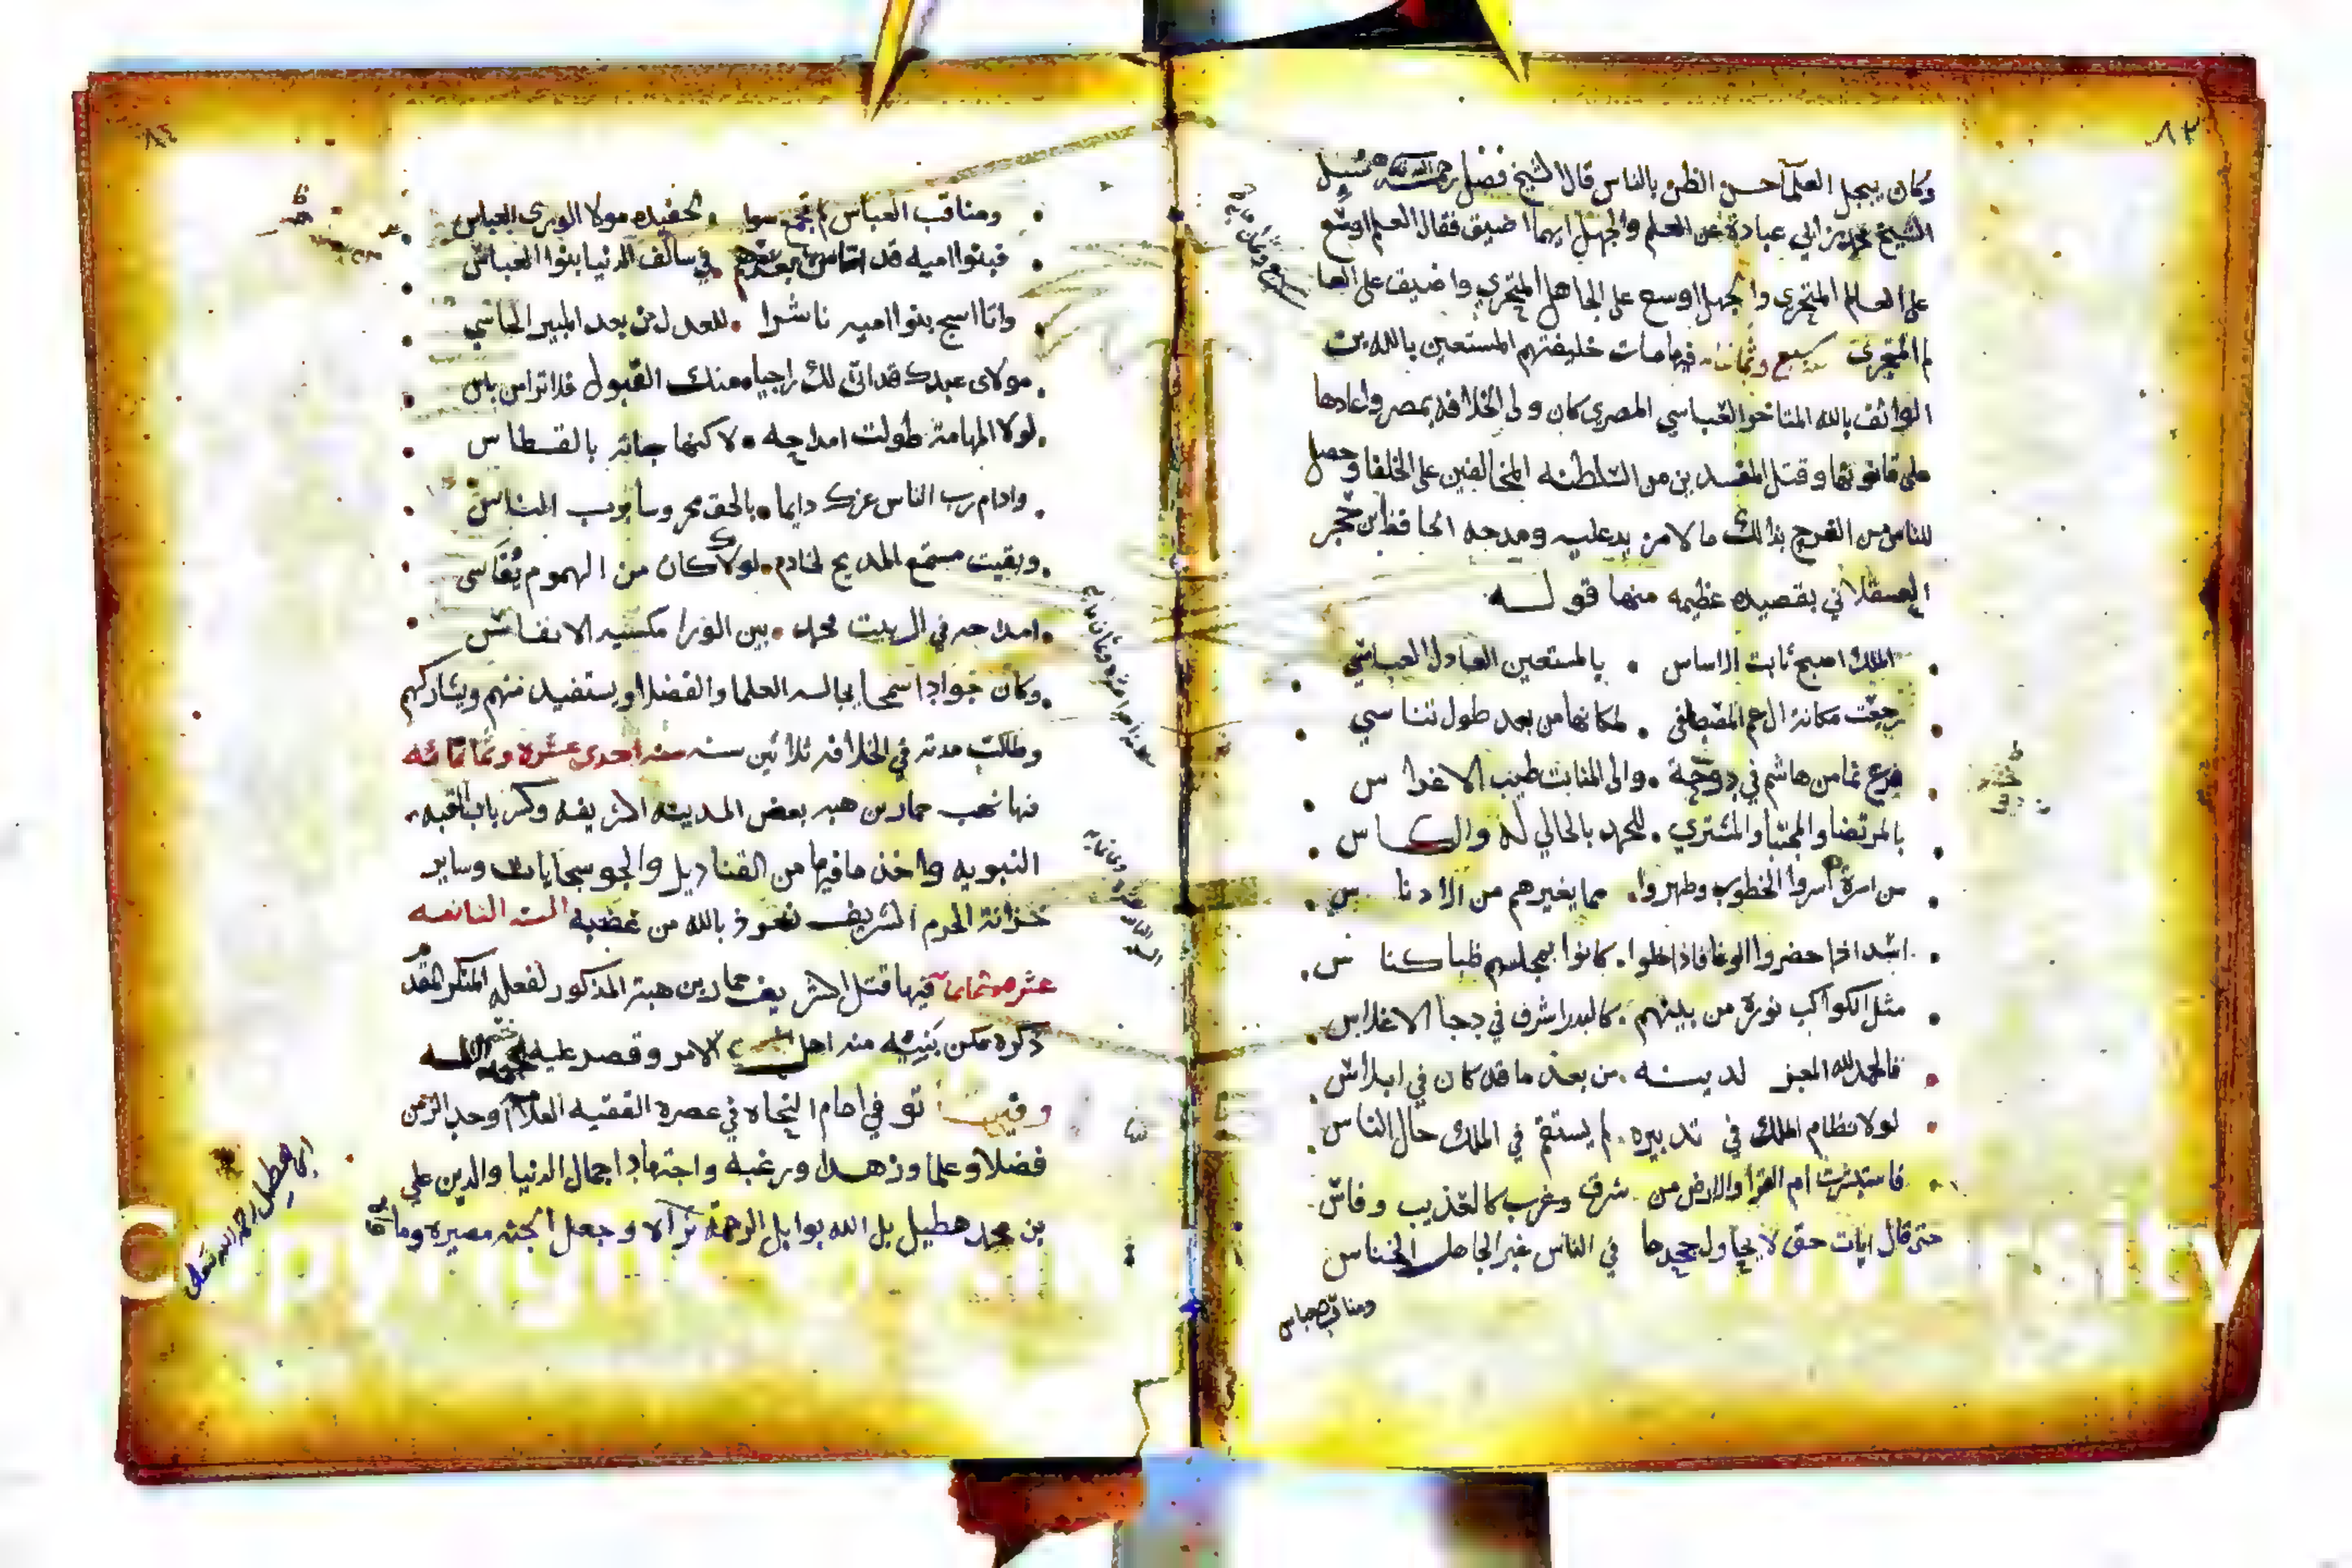 ٨٣
وكان يبجل العلمآ حسن الظن بالناس قال الشيخ فضل رحمه الله سئيل
الشيخ محمد بن ابي عبادة عن العلم والجهل ايهما اضيق فقال العلم اوسع
على العالم المتحري والجهل اوسع على الجاهل المتجري واضيق على العا
لم المتحري سنة سبع وثمانمائه فيها مات خليفتهم المستعين بالله بن
الواثق بالله المتاخر العباسي المصري كان ولي الخلافه بمصر واعادها
على قانونها وقتل المفسدين من السلطنه المخالفين على الخلفا وحصل
للناس من الفرج بذالك ما لا مزيد عليه ومدحه الحافظ بن حجر
العسقلاني بقصيده عظيمه منها قولـه
الملك اصبح ثابت الاساس . بالمستعين العادل العباسي
رجعت مكانة ال عم المصطفى . لمكانها من بعد طول تناسي
فرع نما من هاشم في دوحة . والى المنابت طيب الاغراس
بالمرتضا والمجتبا والمشتري . للحمد بالحالي له والكاس
من اسرة اسروا الخطوب وطهروا . مما يغيرهم من الادناس
اسد اذا حضروا الوغا فاذا خلوا . كانوا بمجلسهم ظبا كناس
مثل الكواكب نورة من بينهم . كالبدر اشرف في دجا الاغلاس
فالحمد لله المعز لدينه . من بعد ما قد كان في ابلاس
لولا نظام الملك في تدبيره . لم يستقم في الملك حال الناس
فاستبشرت ام القرا والارض من شرق وغرب كالعذيب وفاس
حتى قال ايات حق لا يحاول جحدها في الناس غير الجاهل الخناس
ومناقب عباس
٨٤
ومناقب العباس لم تجمع سوا . لحفيده مولا الورى العباس
فبنوا اميه قد اتا من بعدهم في سالف الدنيا بنوا العباس
واتا اسج بنوا اميه ناشرا . للعدل من بعد المبير الخاسي
مولاى عبدك قد اتى لك راجيا . منك القبول فلا ترا من باس
لولا المهابة طولت امداحه . لاكنها جائته بالقسطاس
وادام رب الناس عزك دايما . بالحق محروسا برب الناس
وبقيت مستمع المديح لخادم . لولاك كان من الهموم يقاسى
امداحه في ال بيت محمد . بين الورا مكسيه الانفاس
وكان جوادا سمحا يجالسه العلما والفضلا ويستفيد منهم ويشاركهم
وظلت مدته في الخلافه ثلاثين سنه سنه احدى عشره وثمانمائه
فيها نهب حماد بن هبه بعض المدينه الشريفه وكسر باب القبه
النبويه واخذ ما فيها من القناديل والجو سجايات وساير
خزانة الحرم الشريف نعوذ بالله من غضبه السنه الثانيه
عشره وثمانمآئه فيها قتل الشريف حماد بن هبة المذكور لفعله المنكر المقدم
ذكره مكن بنيته منه اهل الامر وقصد عليه
وفيها توفي امام النحاه في عصره الفقيه العلامه اوحد الزمن
فضلا وعلما وزهدا ورغبه واجتهادا جمال الدنيا والدين علي
بن محمد هطيل بل الله بوابل الرحمة ثراه وجعل الجنه مصيره وماواه
ابن هطيل رحمه الله تعالى